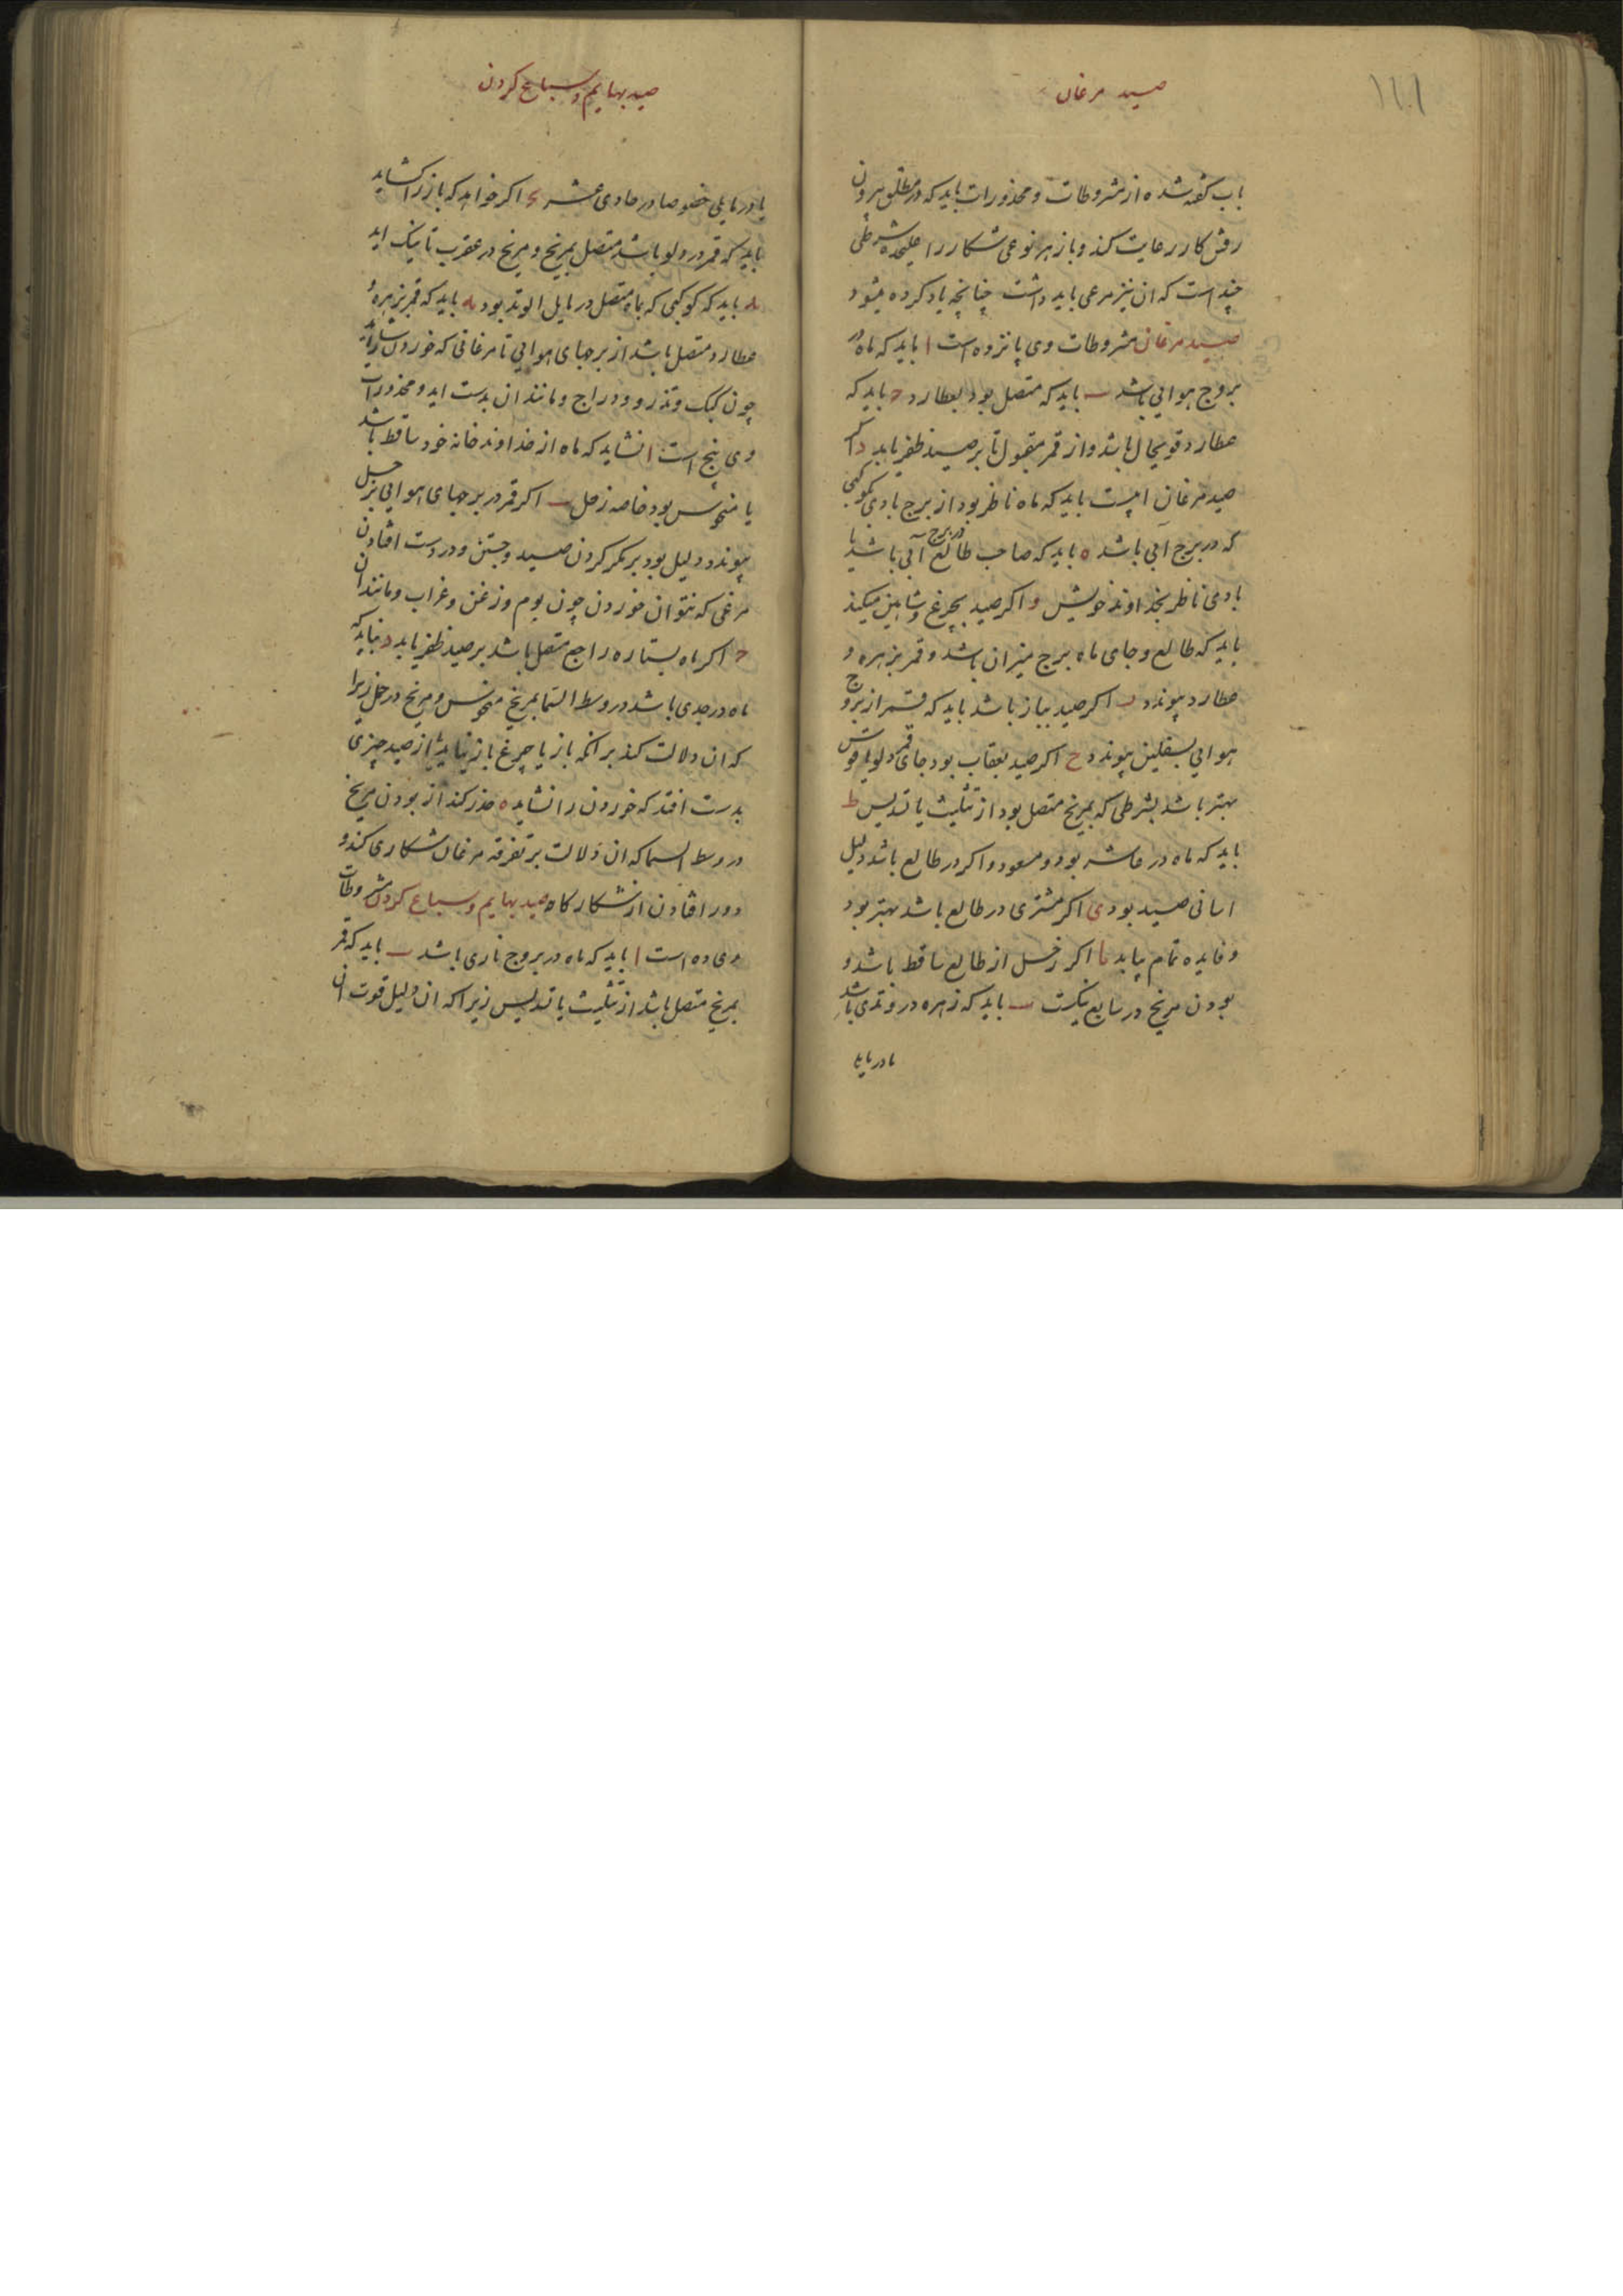 ۱۶۱
صید مرغان
باب گفته شده از مشروطات و محذورات باید که در مطلق بیرون
رفتن کار رعایت کند و باز هر نوعی شکار را علیحده شرطی
چند است که ان نیز مرعی باید داشت چنانچه یاد کرده میشود
صید مرغان مشروطات وی پانزده است ا باید که ماه در
بروج هوایی باشد ب باید که متصل بود بعطارد ج باید که
عطارد قویحال باشد و از قمر مقبول تا بر صید ظفر یابد د اکر
صید مرغان ابیست باید که ماه ناظر بود از برج بادی بکوکبی
که در برج آبی باشد ه باید که صاحب طالع در برج آبی باشد یا
بادی ناظر بخداوند خویش و اکر صید بچرغ و شاهین میکند
باید که طالع و جای ماه برج میزان باشد و قمر بزهره و
عطارد پیوندد ز اکر صید بباز باشد باید که قمر از بروج
هوایی بسفلین پیوندد ح اکر صید بعقاب بود جای قمر دلو یا قوس
بهتر باشد بشرطی که بمریخ متصل بود از تثلیث یا تسدیس ط
باید که ماه در عاشر بود و مسعود و اکر در طالع باشد دلیل
اسانی صید بود ی اکر مشتری در طالع باشد بهتر بود
و فایده تمام بیابد یا اکر زحل از طالع ساقط باشد و
بودن مریخ در سابع نیکست یب باید که زهره در وتدی باشد
یا در مایلی
صید بهایم و سباع کردن
یا در مایلی خصوصا در حادی عشر اکر خواهد که باز را کشاید
باید که قمر در دلو باشد متصل بمریخ و مریخ در عقرب تا نیک اید
باید که کوکبی که بماه متصل در مایل الوتد بود باید که قمر بزهره
عطارد متصل باشد از برجهای هوایی تا مرغانی که خوردن را شاید
چون کبک و تذرو و دراج و مانند ان بدست اید و محذورات
وی پنج است ا نشاید که ماه از خداوند خانه خود ساقط باشد
یا منحوس بود خاصه زحل ب اکر قمر در برجهای هوایی بزحل
پیوندد دلیل بود بر مکر کردن صید و جستن و در دست افتادن
مرغی که نتوان خوردن چون بوم و زغن و غراب و مانند ان
ج اکر ماه بستاره راجع متصل باشد بر صید ظفر یابد د نباید که
ماه در جدی باشد در وسط السما بمریخ منحوس و مریخ در حمل زیرا
که ان دلالت کند بر انکه باز یا چرغ باز نیاید یا از صید چیزی
بدست افتد که خوردن را نشاید ه حذر کند از بودن مریخ
در وسط السما که ان دلالت بر تفرقه مرغان شکاری کند و
دور افتادن از شکارکاه صید بهایم و سباع کردن مشروطات
وی ده است ا باید که ماه در بروج ناری باشد ب باید که قمر
بمریخ متصل باشد از تثلیث یا تسدیس زیرا که ان دلیل قوت ان